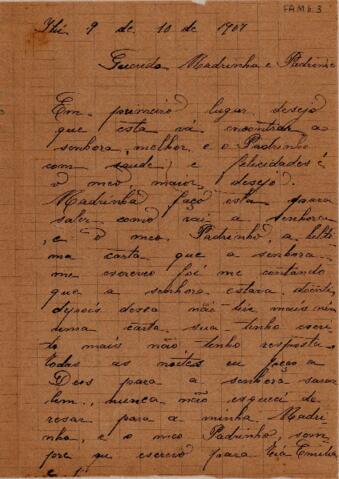 FAM 6.3
Ihi 9 de 10 de 1907
Querida Madrinha e Padrinho
Em primeiro lugar desejo
que esta vá encontrar a
senhora, melhor, e o Padrinho
com saude, e felicidades é
o meo maior desejo.
Madrinha faço esta para
saber como vai a senhora
, e o meo Padrinho, a ulti
ma carta que a senhora
me escreveo foi me contando
que a senhora estava doente,
depois dessa não tive mais ne
uma carta sua tenho escri
to mais não tenho resposta,
todas as nôites eu peço a
Deos para a senhora sarar
bem, nunca não esqueci de
resar para a minha Madri
nha, e o meo Padrinho, sem
pre que escrevo para tia Emilia
e